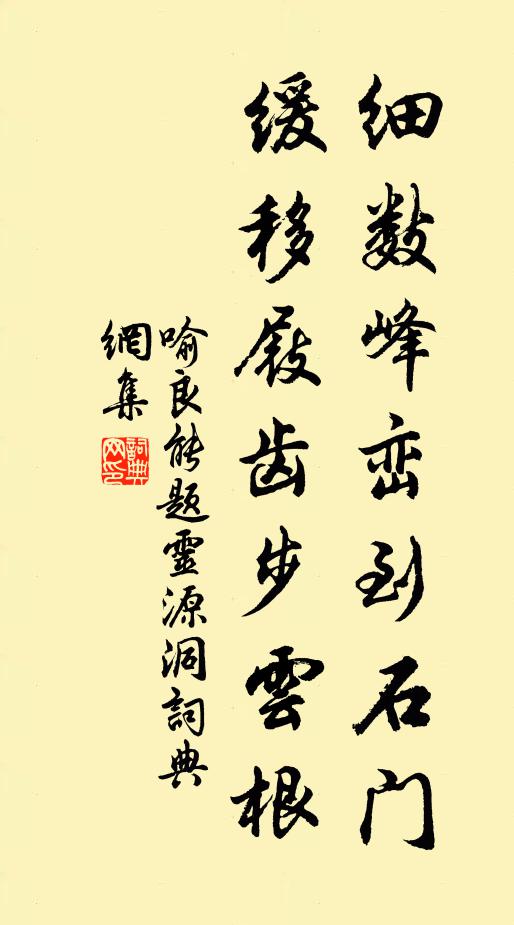 细数峰峦到石门
缓移屐齿步雲根
喻良能题靈源洞詞典
網集
詞典網印